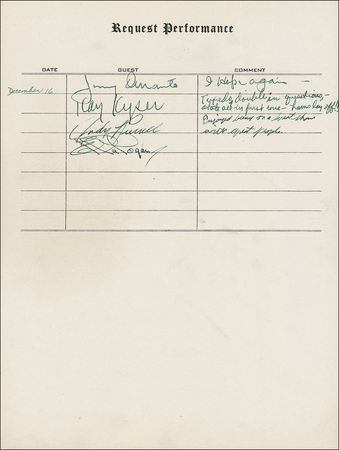 Request Performance
DATE GUEST COMMENT
December 16 Jimmy Durante I hope again —
Kay Kyser Typely double in questions —
state act is first one —
Andy Russell Enjoyed being on a great show
with great people
Rogan